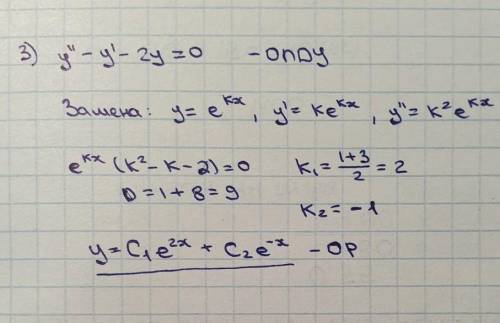 3) y'' - y' - 2y = 0 - ОЛДУ
Замена: y = e^{kx}, y' = ke^{kx}, y'' = k²e^{kx}
e^{kx}(k² - k - 2) = 0 k₁ = (1+3)/2 = 2
D = 1 + 8 = 9
k₂ = -1
y = C₁e^{2x} + C₂e^{-x} - ОР